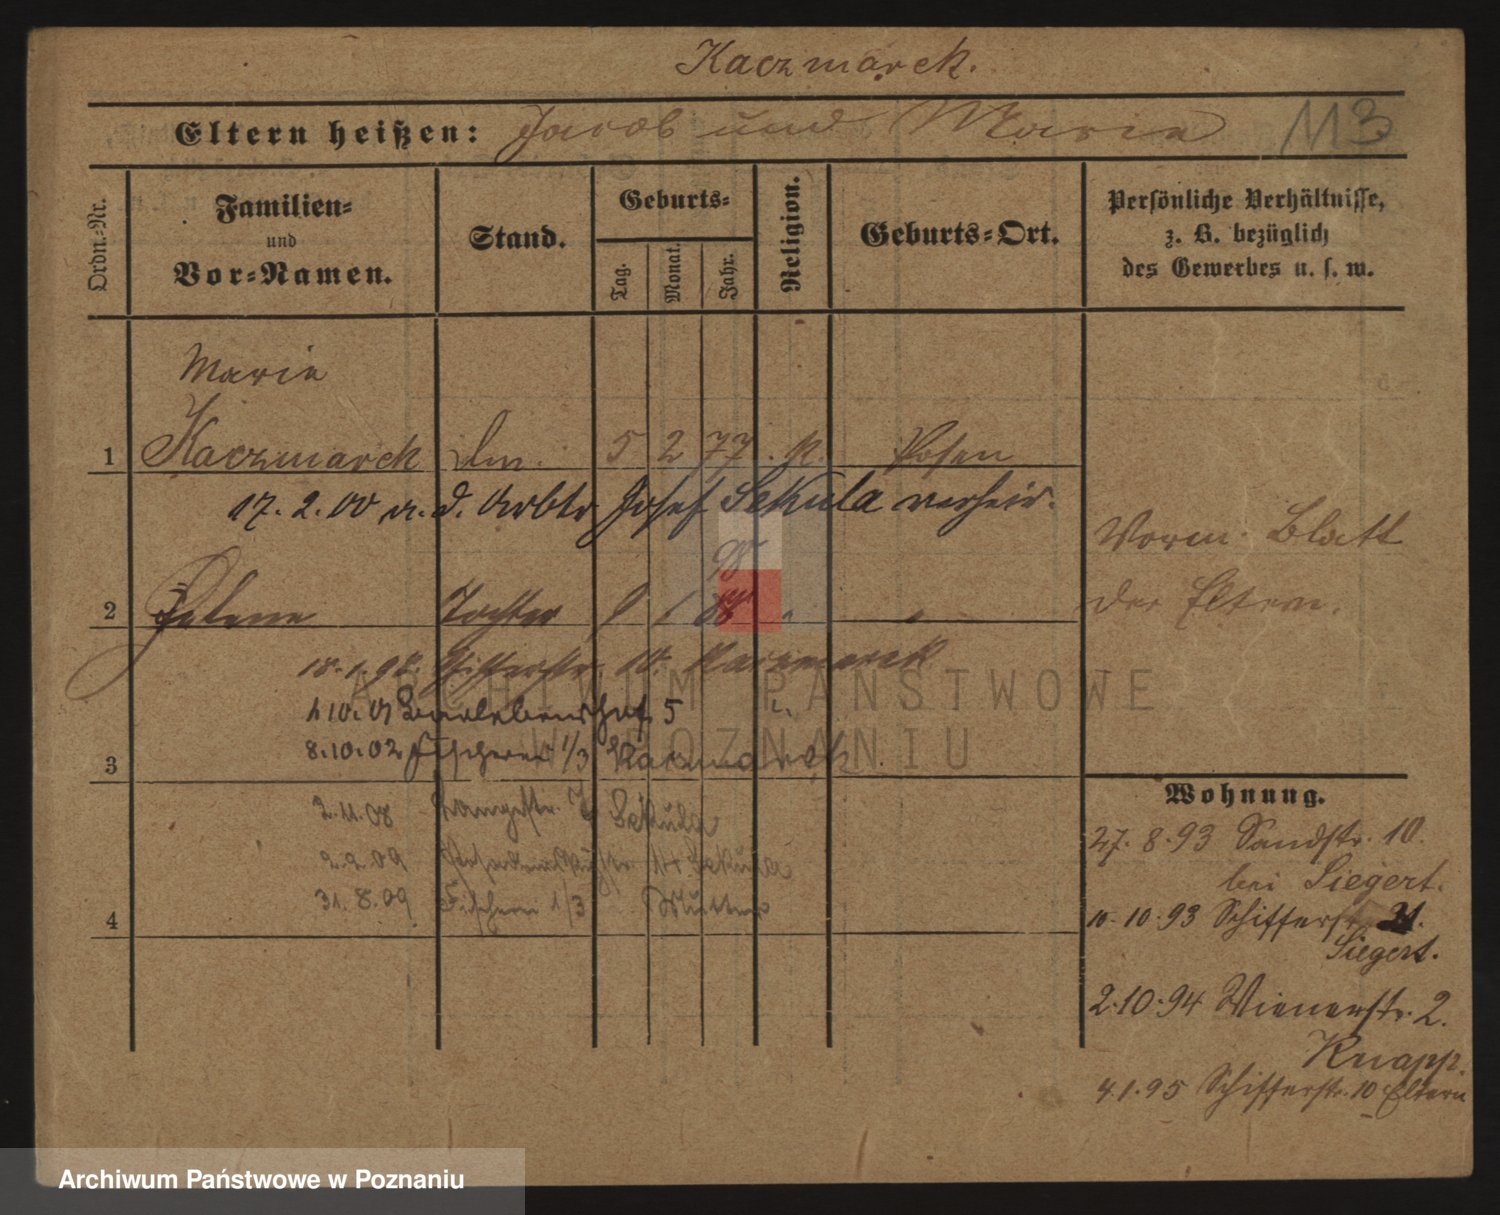 Kaczmarek.
Eltern heißen: Jacob und Marie 113
Ordn.-Nr.
Familien-
und
Vor-Namen.
Stand.
Geburts-
Tag.
Monat.
Jahr.
Religion.
Geburts-Ort.
Persönliche Verhältnisse,
z. B. bezüglich
des Gewerbes u. s. w.
Marie
1 Kaczmarek 5 2 77. K. Posen
17. 2. 00 a. d. Arbtr Josef Sekula verheir.
Vorm. Blatt
der Eltern.
98
2 Helene Tochter 1
18.1.98. Schifferstr. 10. Kaczmarek
ARCHIWUM PAŃSTWOWE
W POZNANIU
5
3 8.10.02 Fischerei 1/3 Kaczmarek
2.11.08 Sekula
2.2.09 Sekula
4 31.8.09 Fischerei 1/3 Mutter
Wohnung.
27. 8. 93 Sandstr. 10.
bei Siegert.
10.10.93 Schifferstr. 21.
Siegert.
2.10.94 Wienerstr. 2.
Knapp.
4.1.95 Schifferstr. 10 Eltern
Archiwum Państwowe w Poznaniu